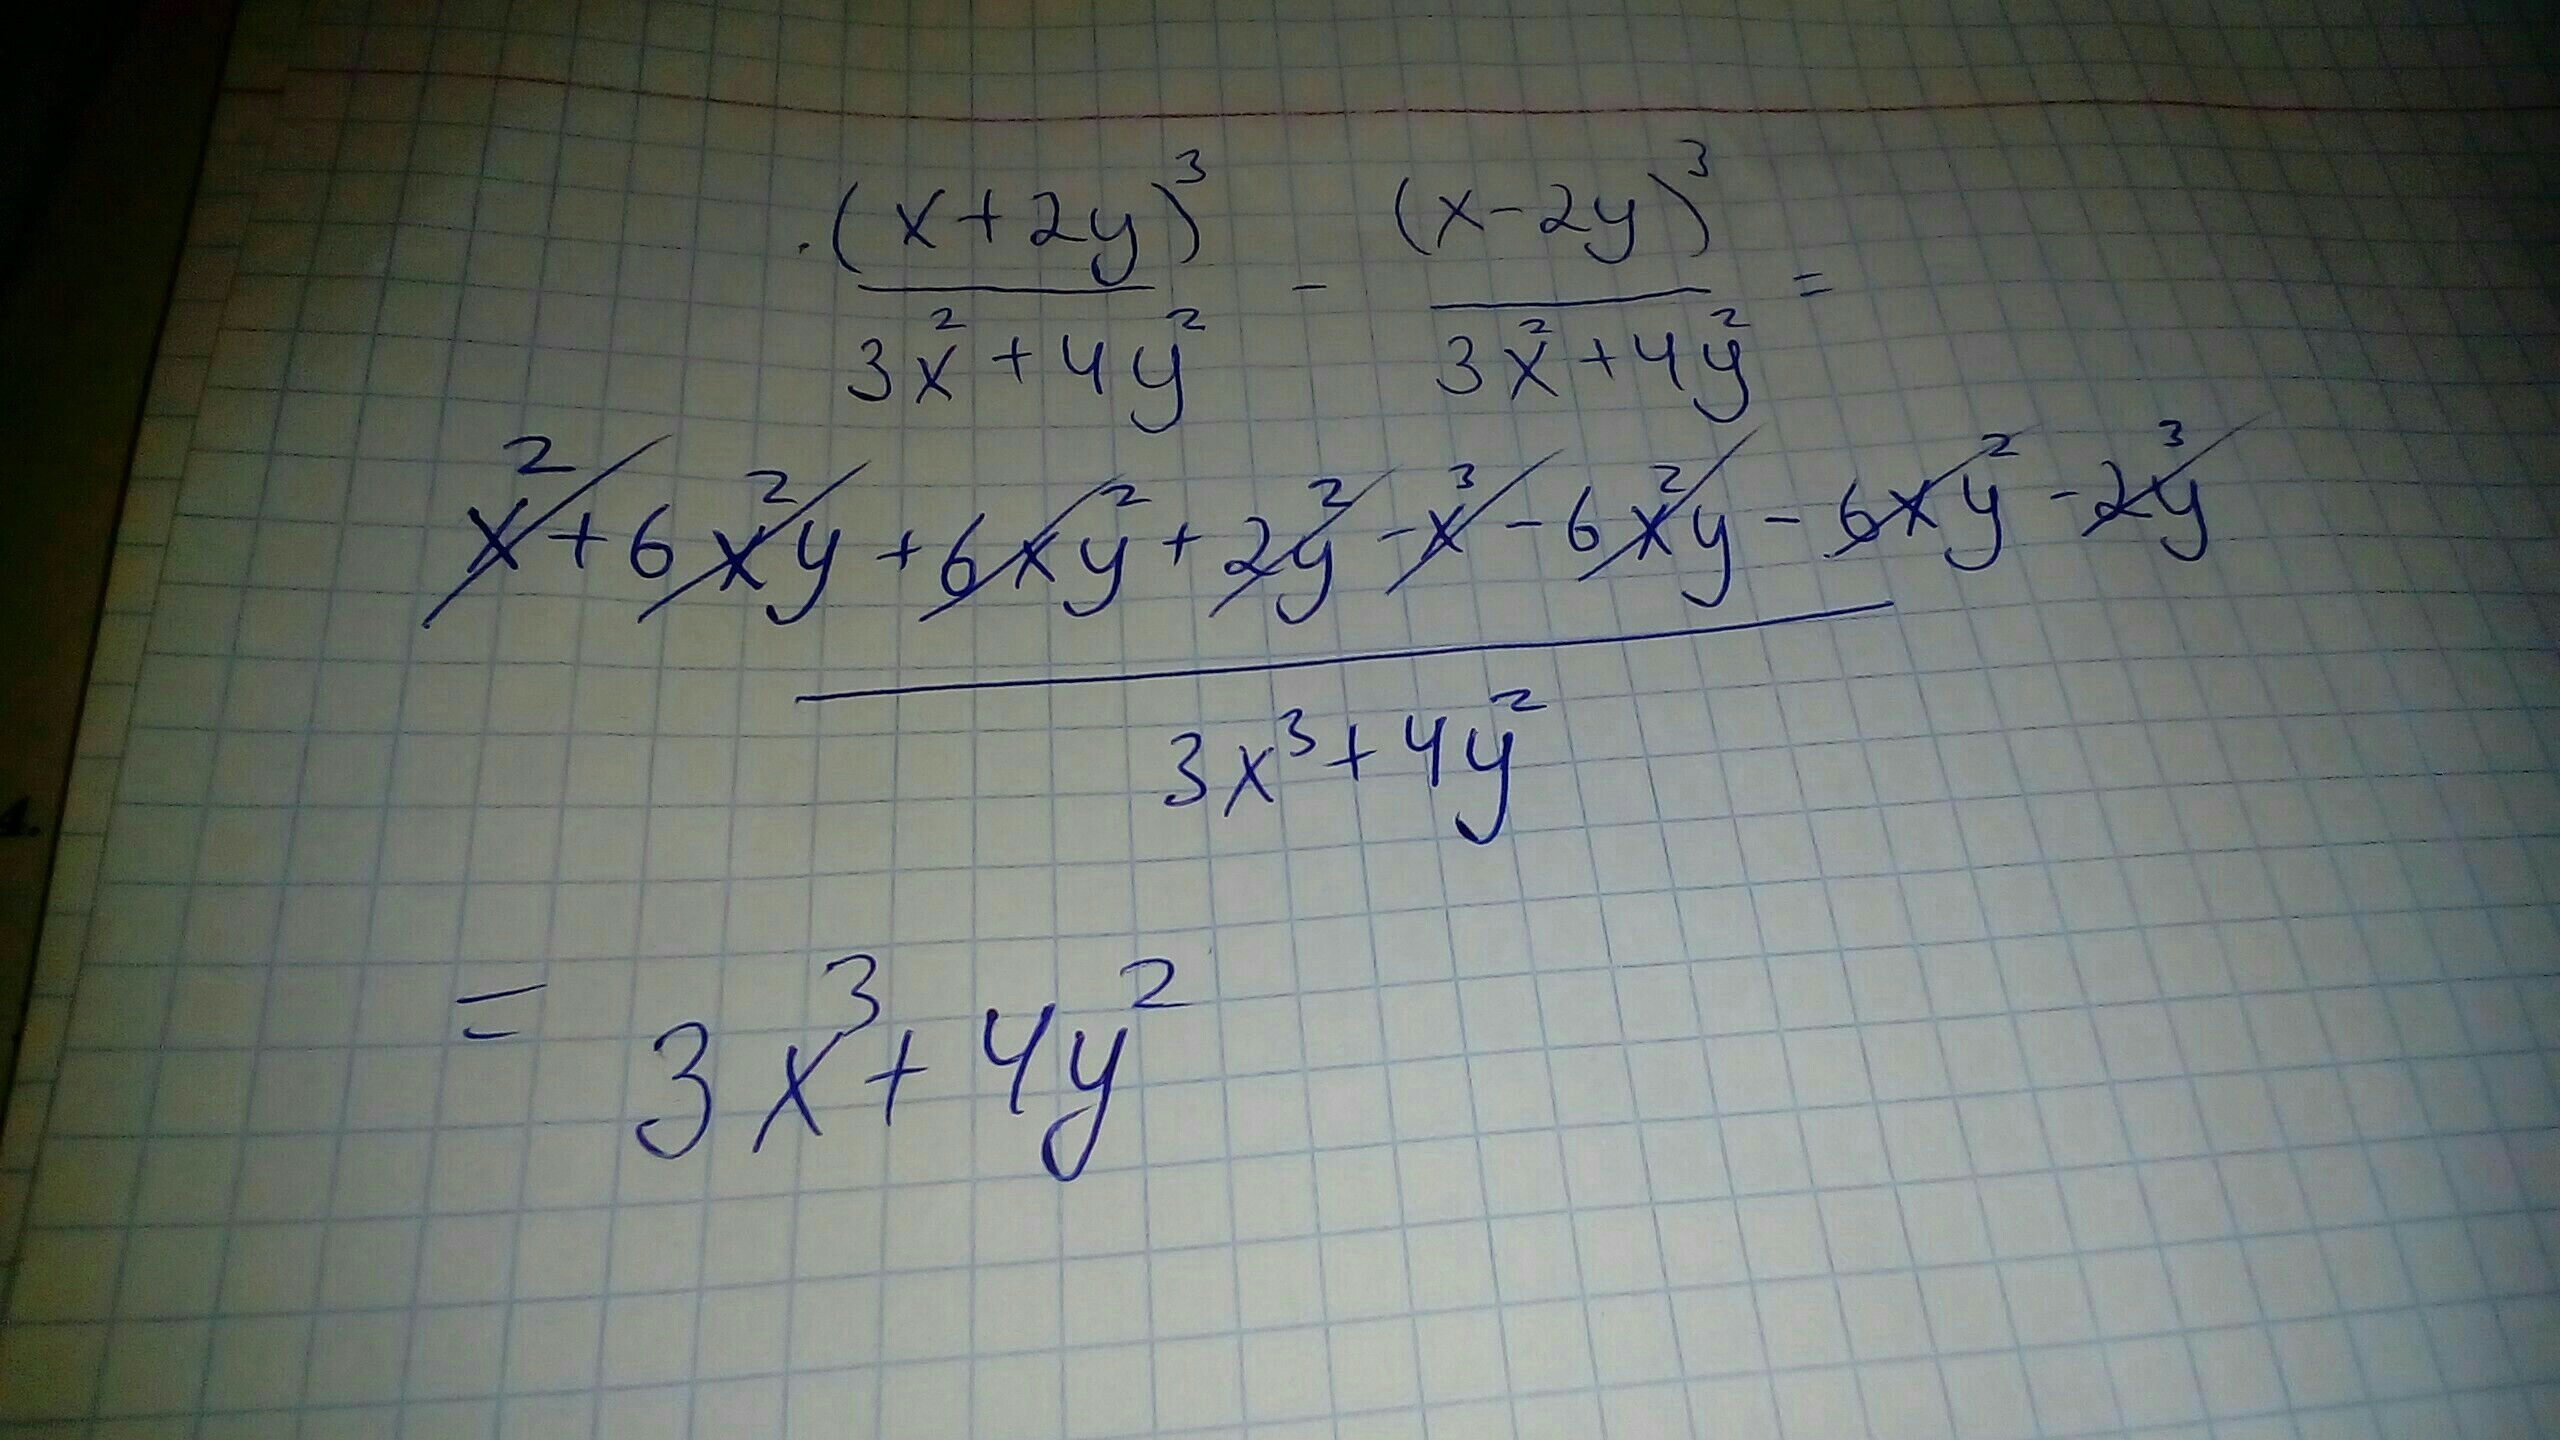 (x+2y)³ - (x-2y)³ =
3x²+4y² 3x²+4y²
x²+6x²y+6xy²+2y²-x³-6x²y-6xy²-2y³
3x³+4y²
= 3x³+4y²